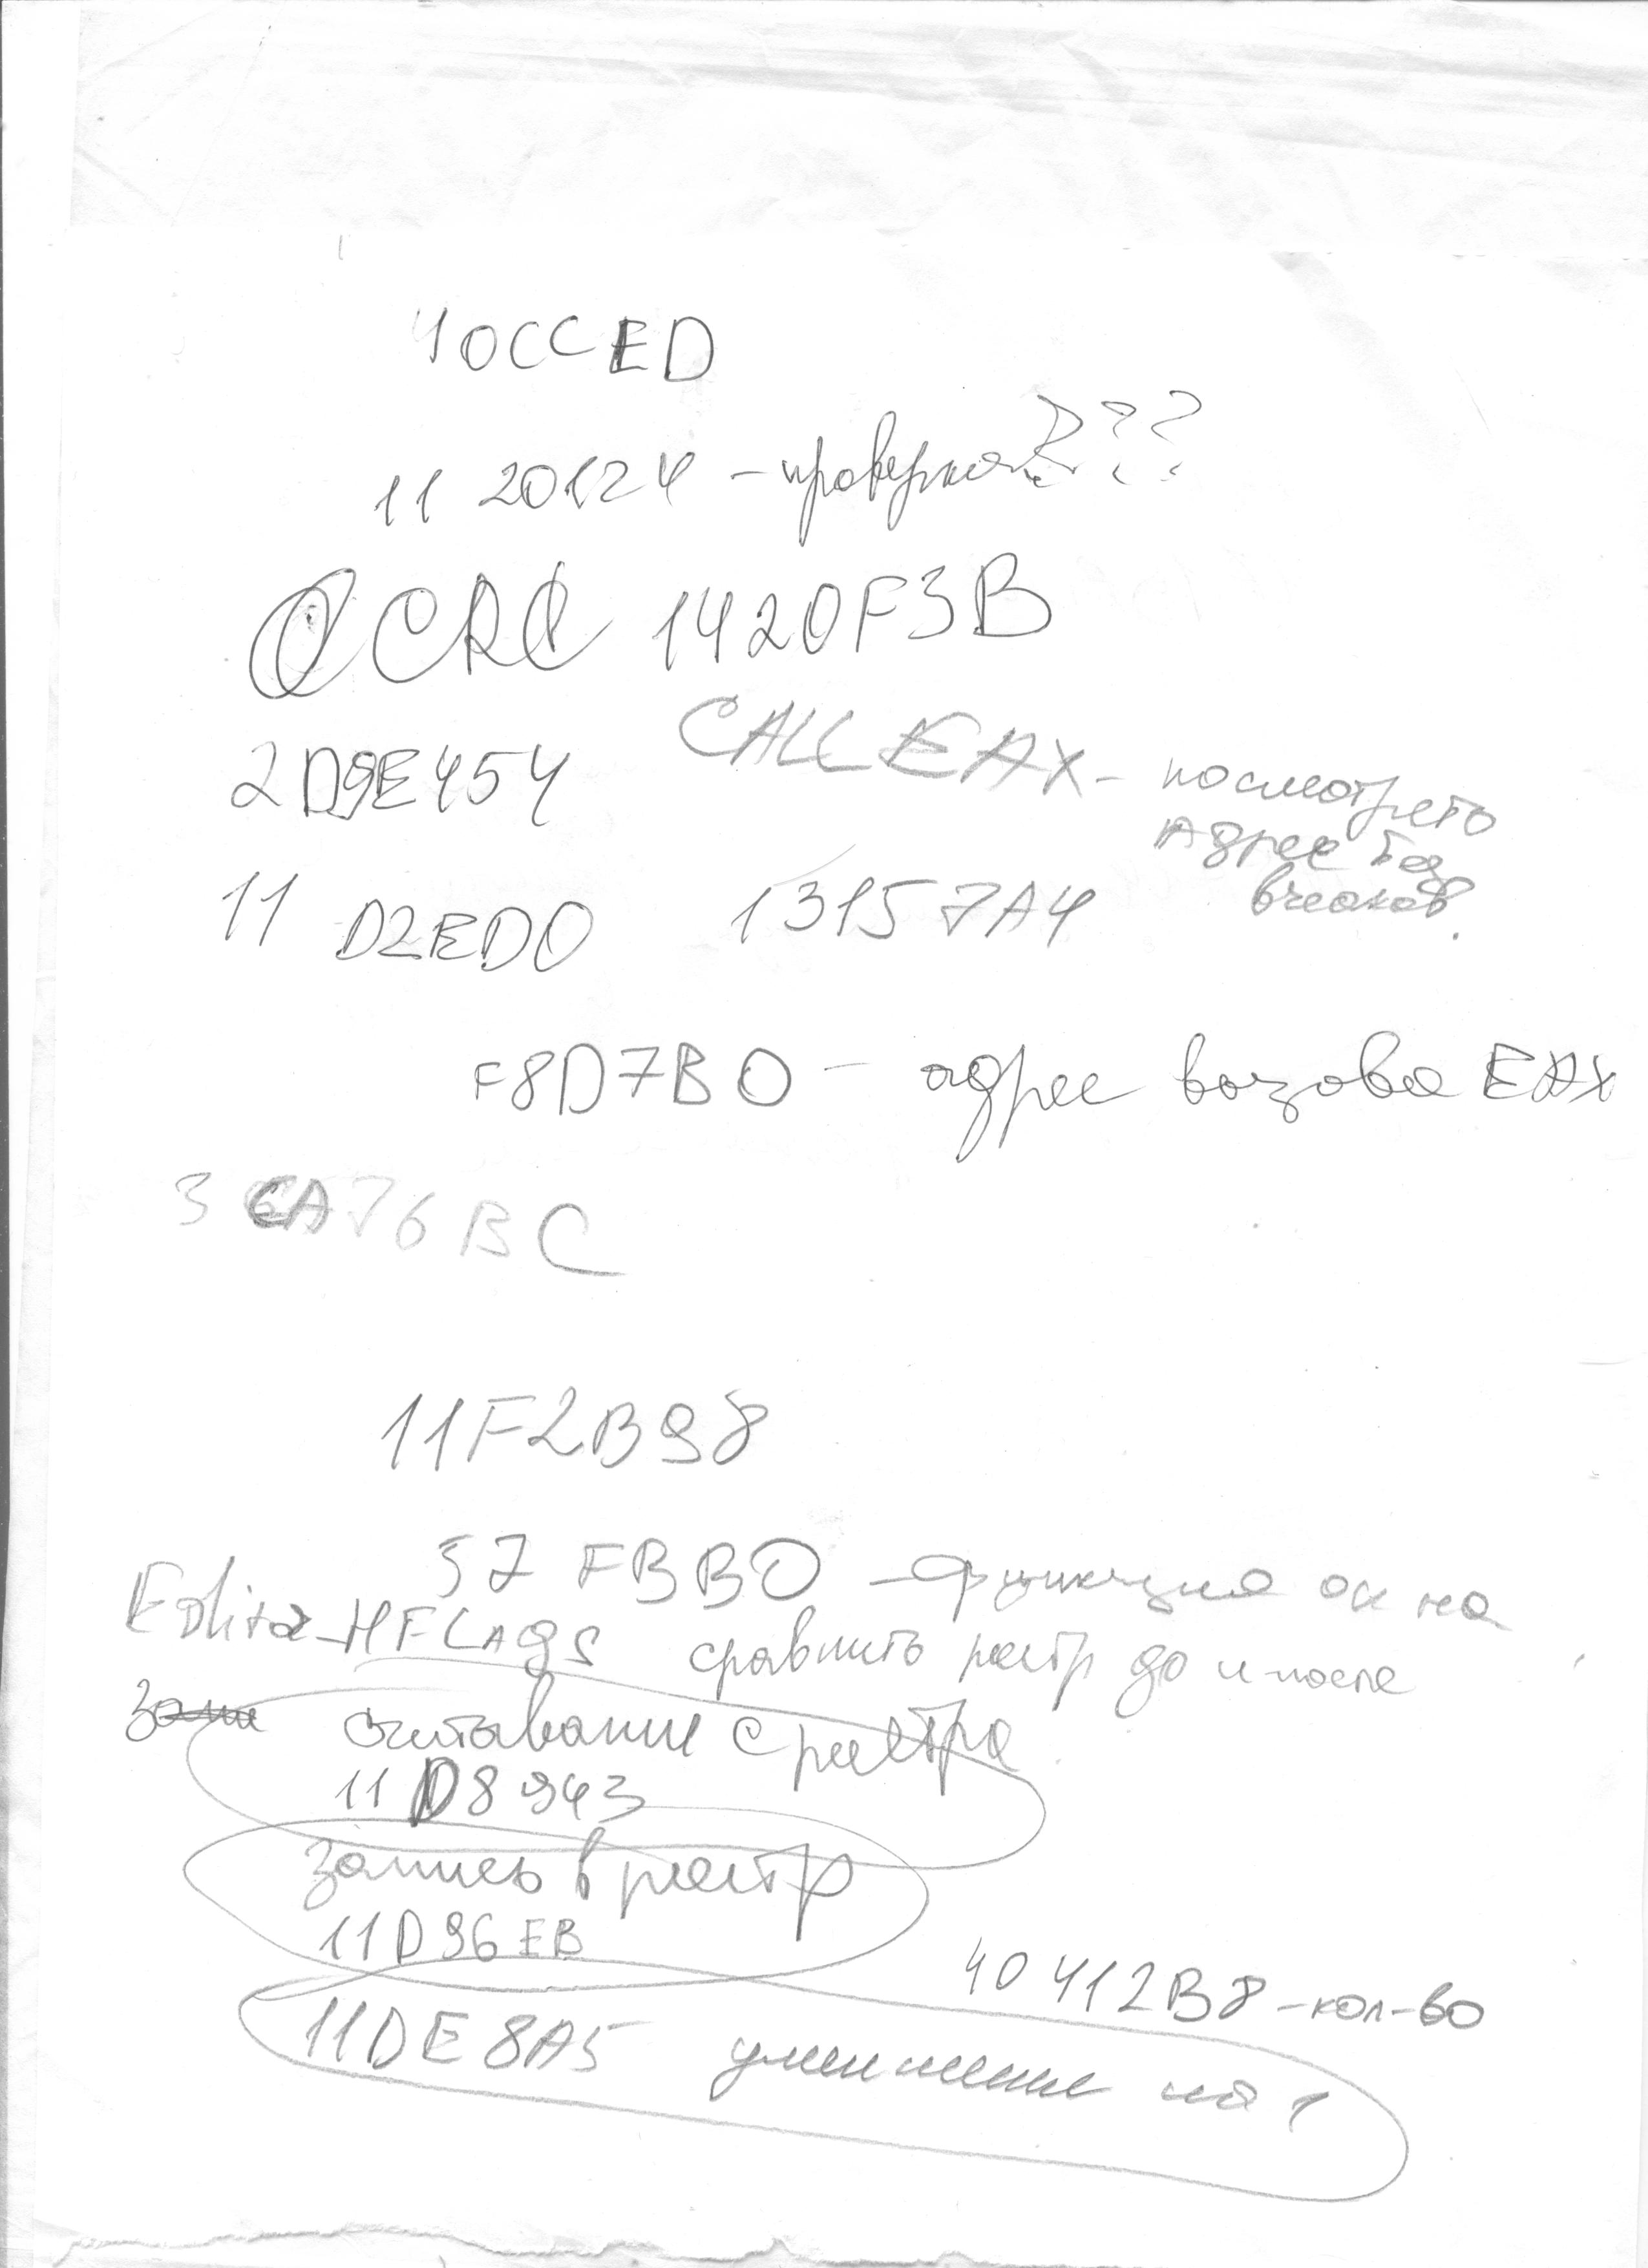 40CCED
11 20124 - проверка???
CRC 1420F3B
2D9E454 CALL EAX - посмотреть
адрес без
11 D2ED0 13157A4
F8D7B0 - адрес вызова EAX
3CA76BC
11F2B98
57FBB0 - функция окна
HFLAGS сравнить реестр до и после
считывание с реестра
11D8943
запись в реестр
11D96EB
40412B8 - кол-во
11DE8A5 уменьшение на 1